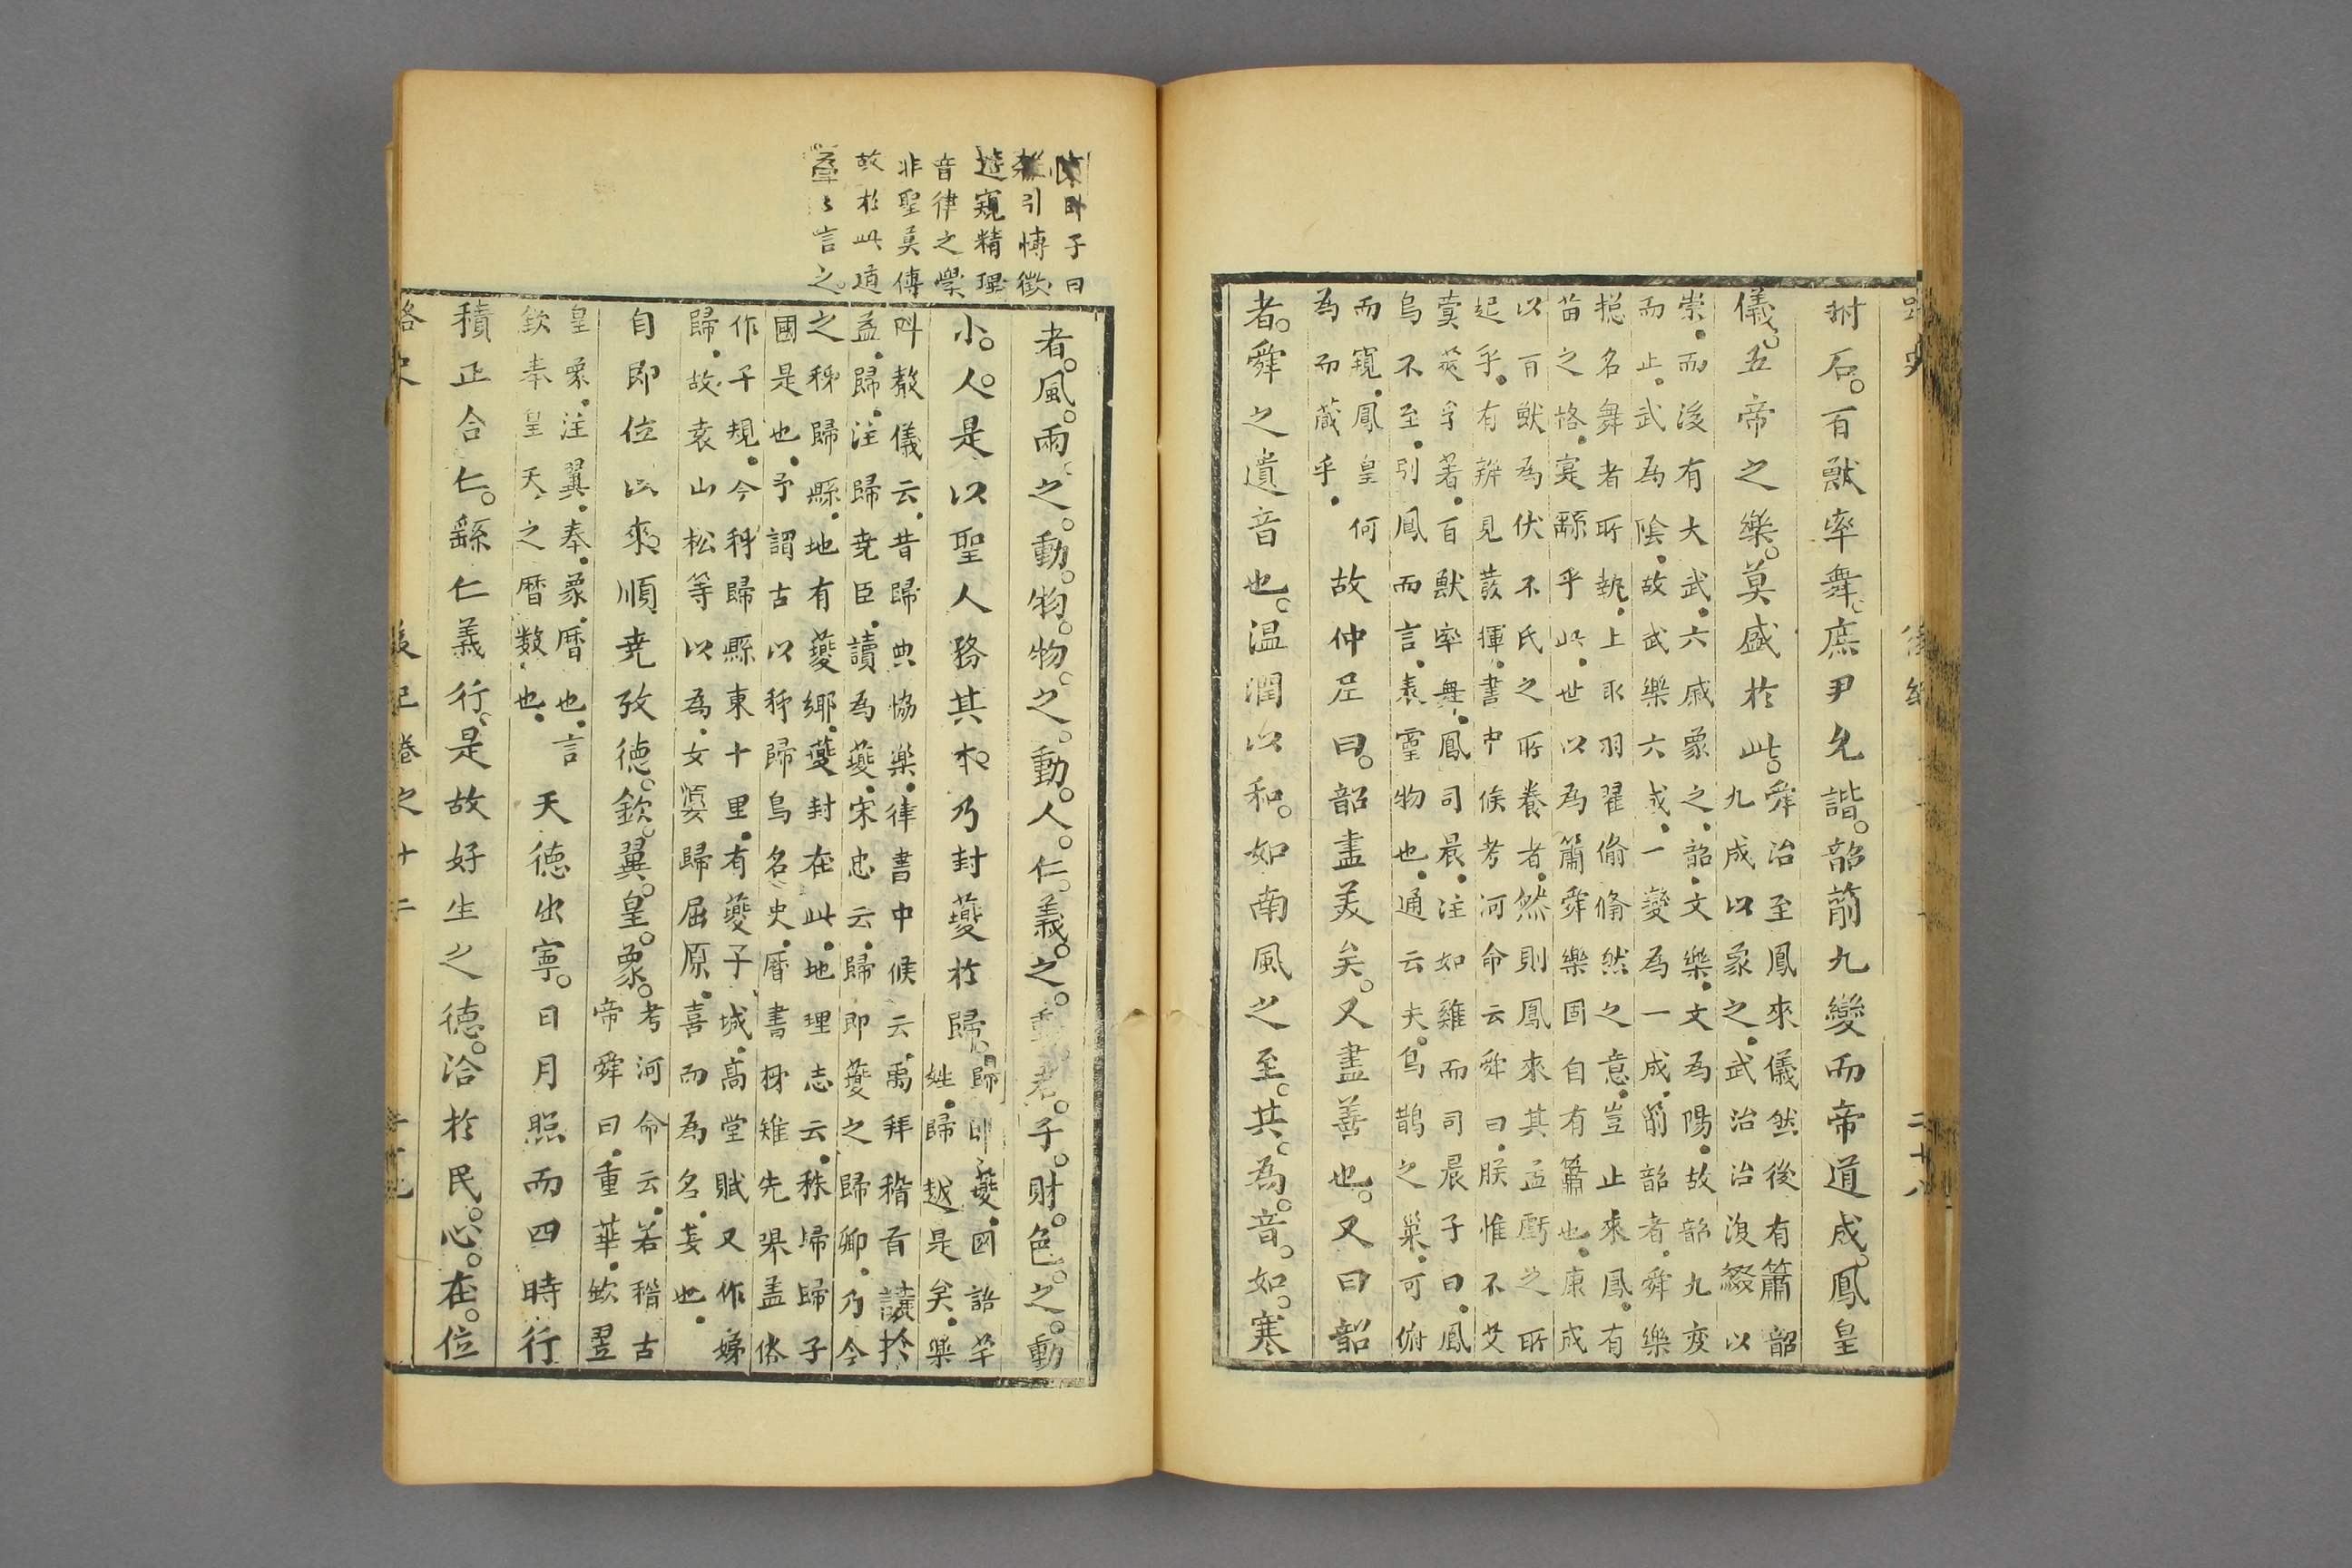 拊石百獸率舞庶尹允諧韶箾九變而帝道成鳳皇
儀五帝之樂莫盛於此
舜治至鳳來儀然後有簫韶
九成以象之武治治復綴以
崇而後有大武六成象之韶文樂文為陽故韶九変
而止武為陰故武樂六成一變為一成箾韶者舜樂
揔名舞者所執上取羽翟偷偹然之意豈止來鳳有
苗之格寔繇乎此世以為簫舜樂固自有簫也康成
以百獸為伏不氏之所養者然則鳳來其孟虧之所
起乎有辨見發揮書中候考河命云舜曰朕惟不艾
蓂莢孚著百獸率舞鳳司晨注如雞而司晨子曰鳳
鳥不至引鳳而言表靈物也通云夫烏鵲之巢可俯
而窺鳳皇何
為而蔵乎
故仲尼曰韶盡美矣又盡善也又曰韶
者舜之遺音也温潤以和如南風之至其為音如寒
子曰
引愽徵
遊窺精理
音律之學
非聖莫傳
故於此道
言之
者風雨之動物物之動人仁義之動君子財色之動
小人是以聖人務其本乃封夔於歸
歸即夔國語芊
姓歸越是矣樂
叶聲儀云昔歸典協樂律書中候云禹拜稽首讓於
益歸注歸尭臣讀為夔宋忠云歸即夔之歸鄉乃今
之秭歸縣地有夔鄉夔封在此地理志云秭歸歸子
國是也予謂古以秭歸鳥名史暦書秭雉先㬥盖俗
作子規今秭歸縣東十里有夔子城高堂賦又作㛮
歸故袁山松等以為女嬃歸屈原喜而為名妄也
自即位以來順尭攷徳欽翼皇象
考河命云若稽古
帝舜曰重華欽翌
皇象注翼奉象暦也言
欽奉皇天之暦数也
天徳出寧日月照而四時行
積正合仁繇仁義行是故好生之徳洽於民心在位
後紀卷之十二